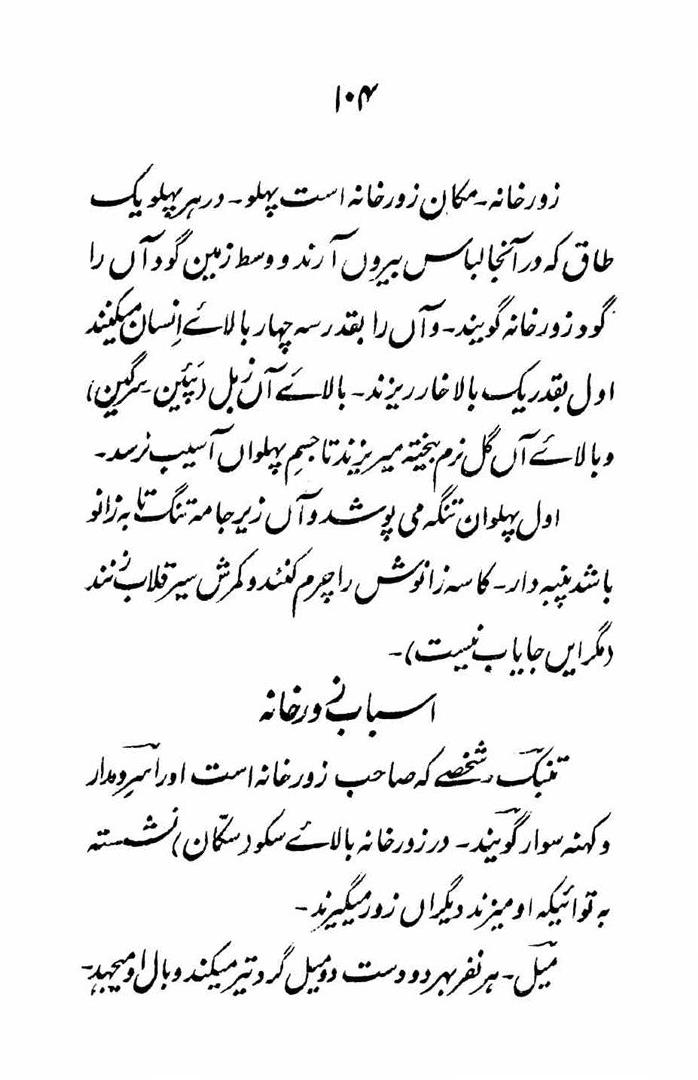 ۱۰۴
زورخانہ۔ مکان زورخانہ است پہلو۔ در ہر پہلو یک
طاق کہ در آنجا لباس بیروں آرند و وسط زمین گود آں را
گود زورخانہ گویند۔ و آں را بقدر سہ چہار بالائے اِنسان میکنند
اول بقدر یک بالا خار ریزند۔ بالائے آں زبل (پَئین۔ سرگین)
و بالائے آں گل نرم بیختہ میریزند تا جسمِ پہلواں آسیب نرسد۔
اول پہلوان تنگہ می پوشد و آں زیر جامہ تنگ تا بہ زانو
باشد پنبہ دار۔ کاسہ زانوش را چرم کنند و کمرش سیر قلاب زنند
(مگر ایں جا یاب نیست)۔
اسباب زورخانہ
تنبک۔ شخصے کہ صاحب زورخانہ است او را
و کہنہ سوار گویند۔ در زورخانہ بالائے سکو (سکّان) نشستہ
بہ توائیکہ او میزند دیگراں زور میگیرند۔
میل۔ ہر نفر بہر دو دست دو میل گرد تیر میکند و بال او میجہد۔